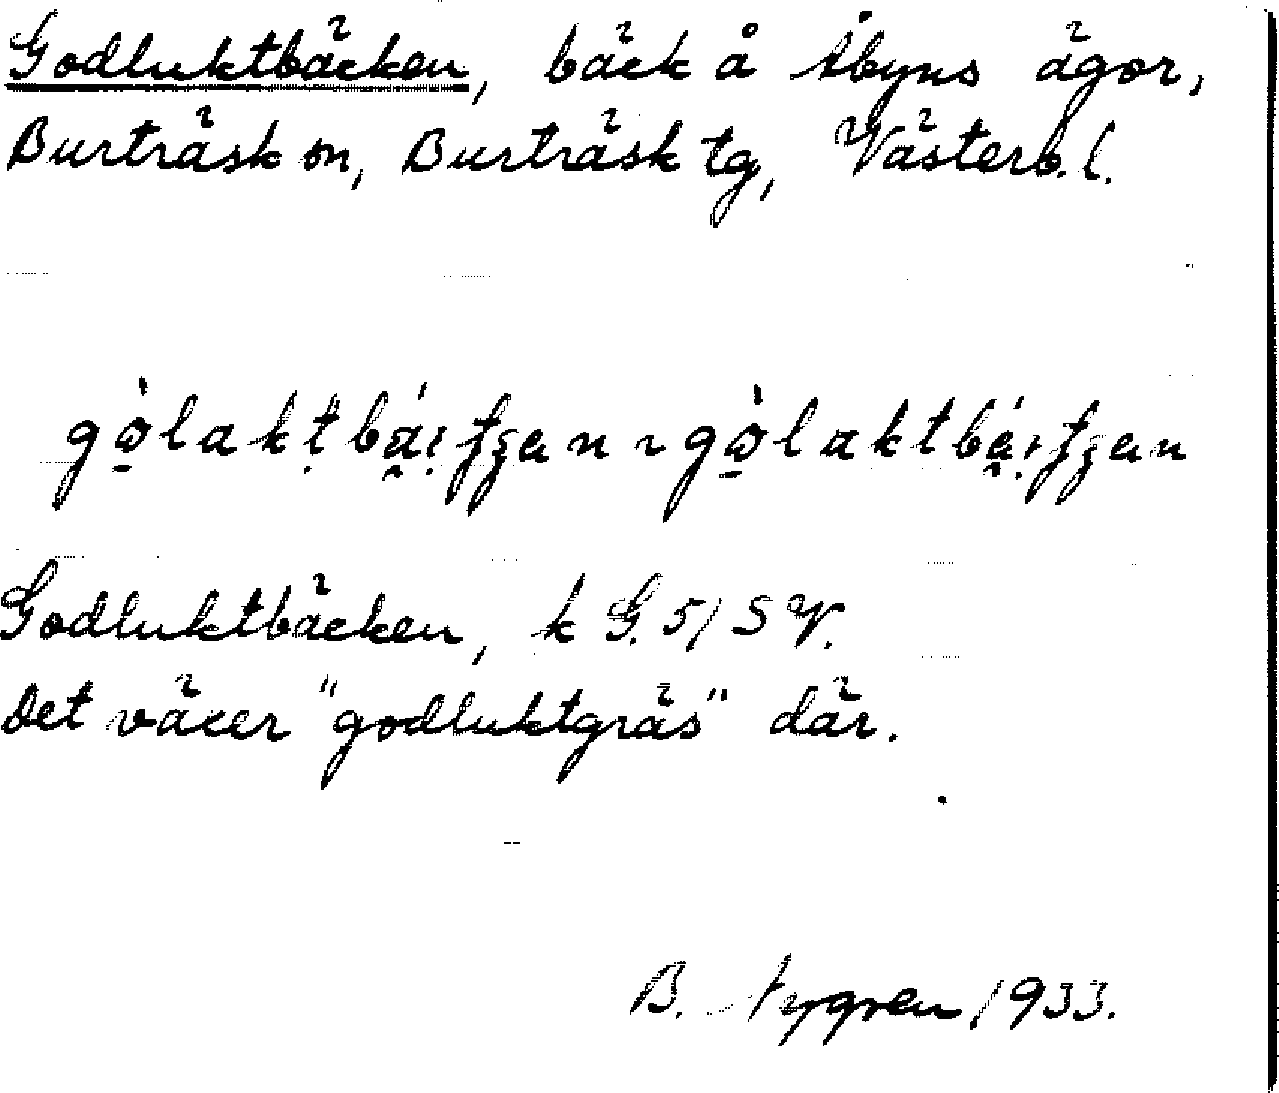 Godluktbäcken, bäck å Åbyns ägor,
Burträsk sn, Burträsk tg, Västerb. l.
Godluktbäcken, k G. 5/SV.
Det växer "godluktgräs" där.
B. Nygren 1933.